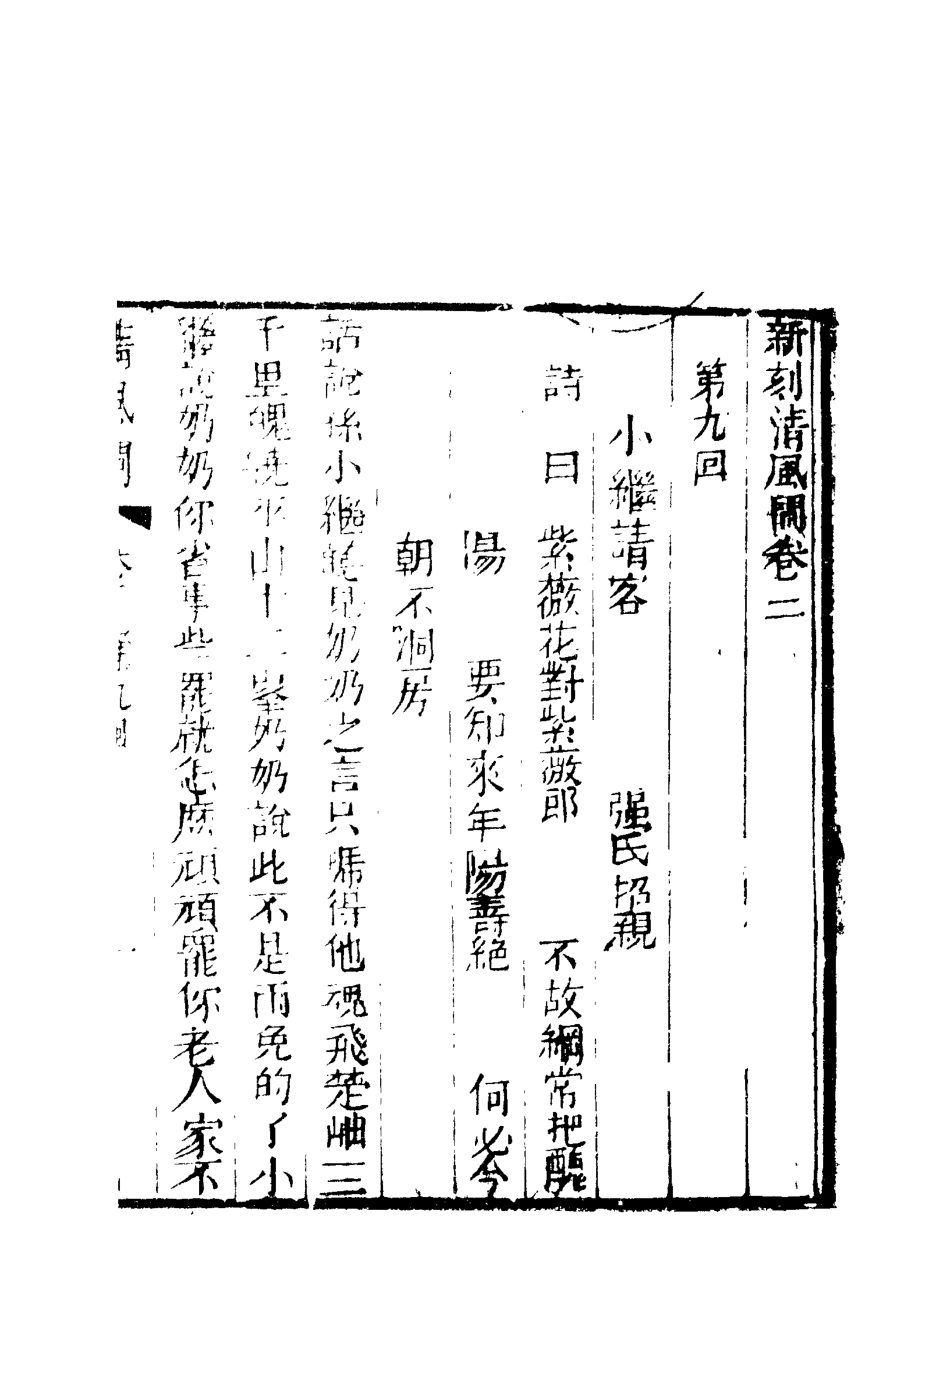 新刻清風閘卷二
第九回
小繼請客 强氏招親
詩曰 紫薇花對紫薇郎 不故綱常把醜
湯 要知來年陽壽絕 何必今
朝不洞房
話說孫小繼聽見奶奶之言只嚇得他魂飛楚岫三
千里魄繞巫山十二峯奶奶說此不是兩免的了小
繼說奶奶你省事些罷就怎麽頑頑罷你老人家不
清風閘 卷二 第九回 一